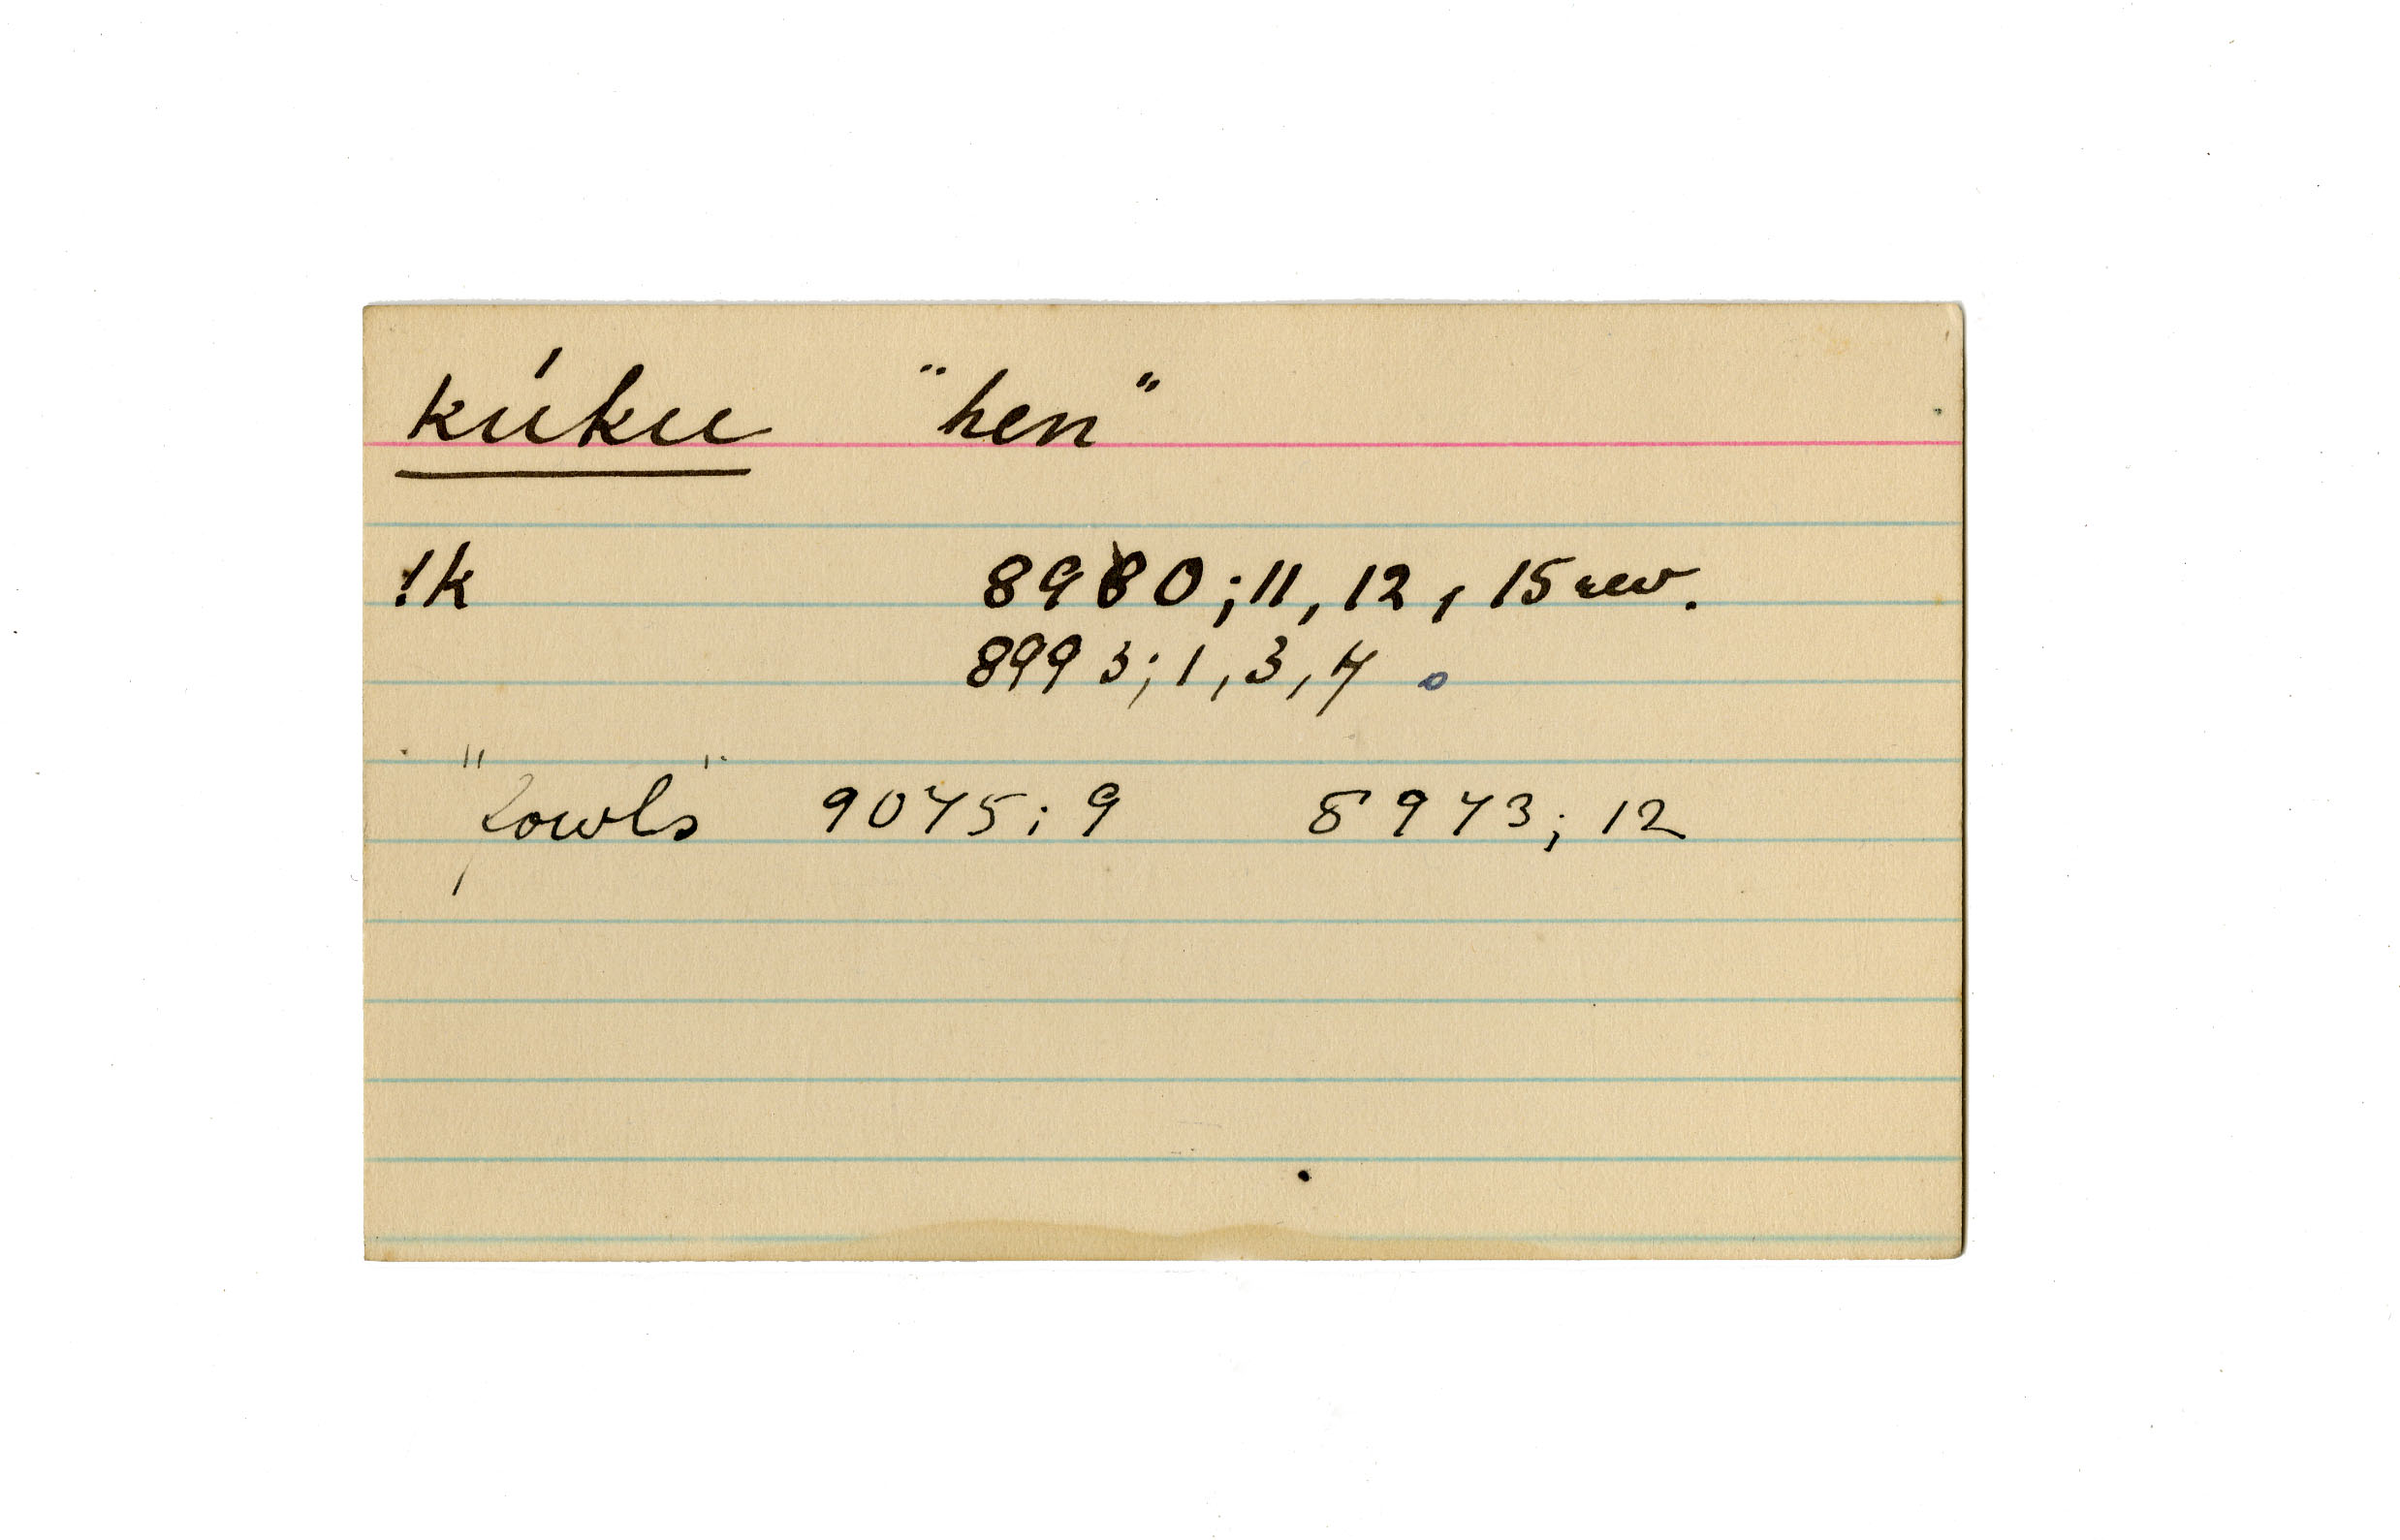 kúku "hen"
!k 8980; 11, 12, 15 rev.
8993; 1, 3, 4.
"fowls" 9045; 9 8943; 12